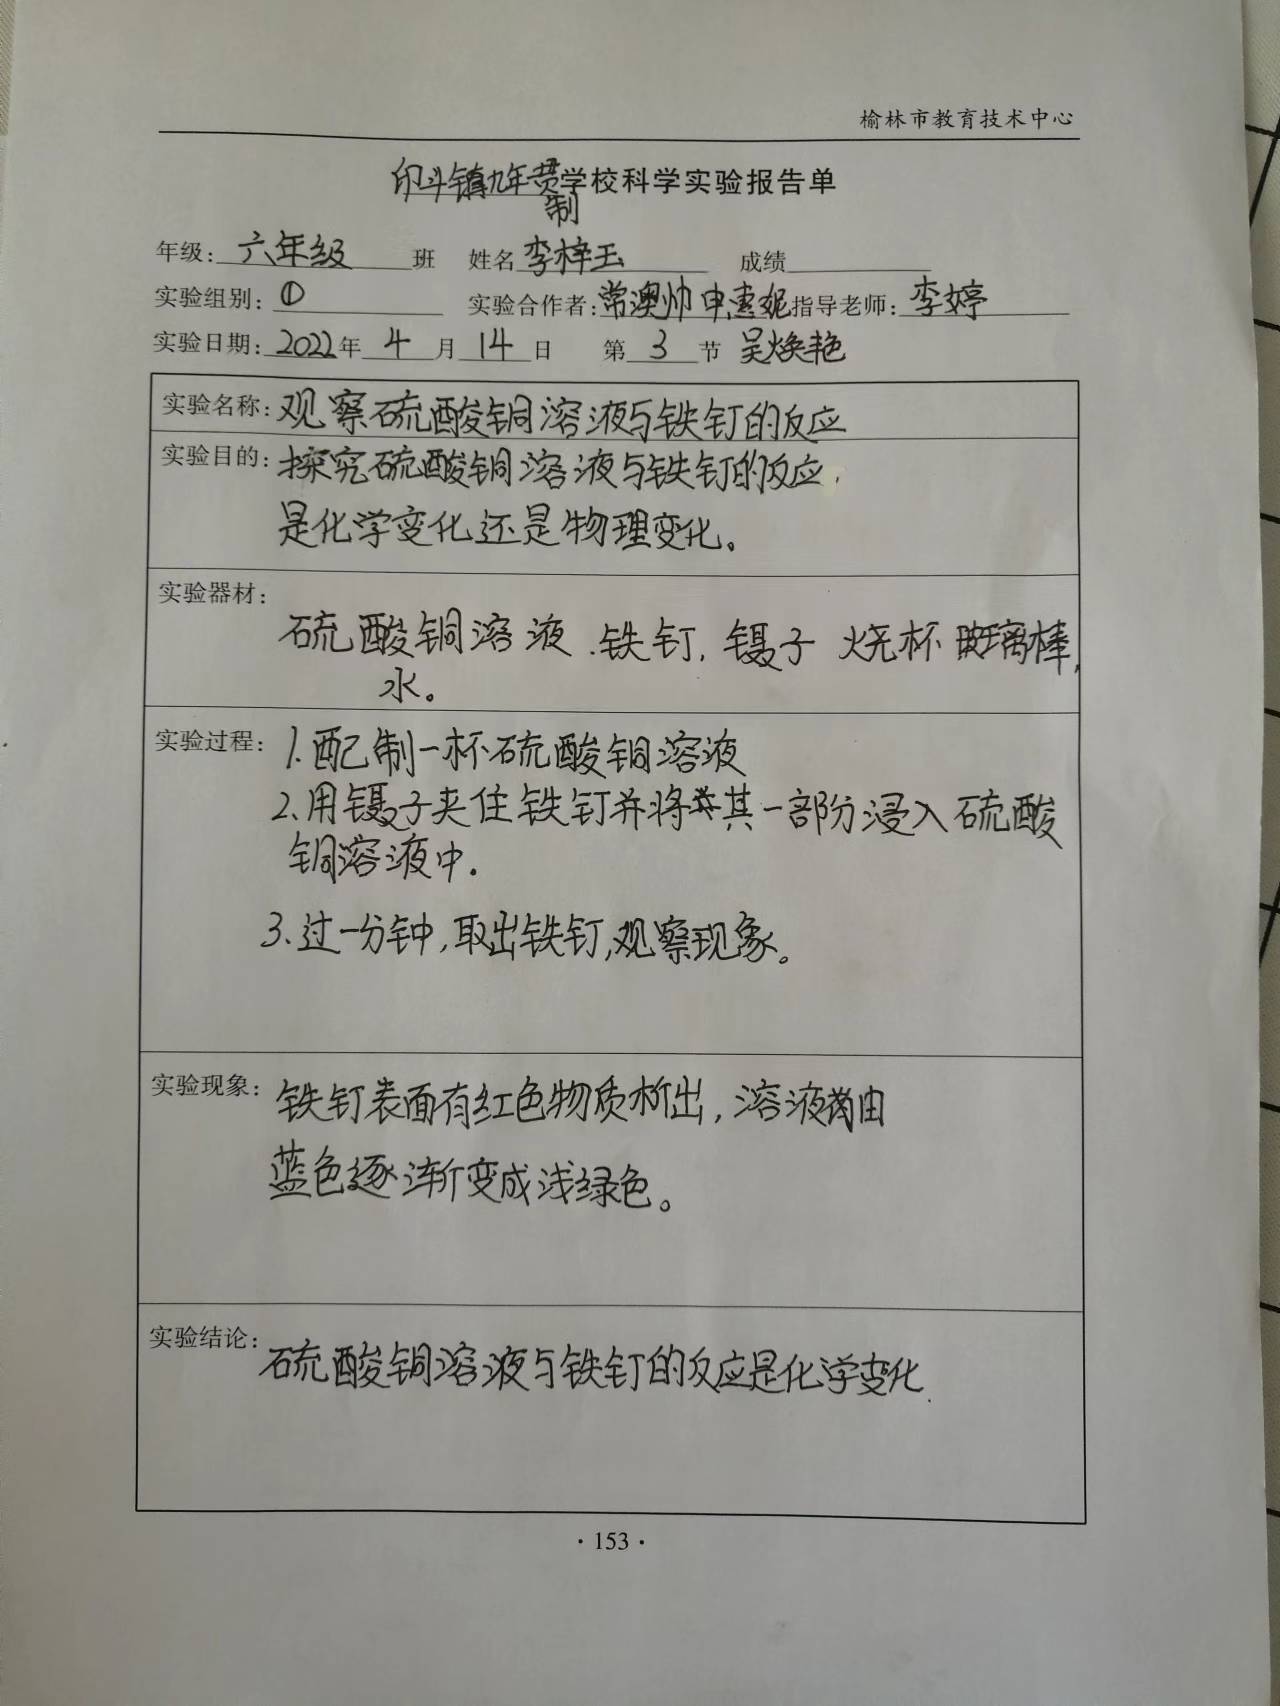 榆林市教育技术中心
印斗镇九年贯学校科学实验报告单
制
年级:六年级 班 姓名 李梓玉 成绩
实验组别:① 实验合作者:常澳帅 申惠妮 指导老师:李婷
实验日期:2022年 4 月 14 日 第 3 节 吴焕艳
实验名称:观察硫酸铜溶液与铁钉的反应
实验目的:探究硫酸铜溶液与铁钉的反应,
是化学变化还是物理变化。
实验器材:
硫酸铜溶液.铁钉,镊子 烧杯 玻璃棒,
水。
实验过程:1.配制一杯硫酸铜溶液
2.用镊子夹住铁钉并将其一部分浸入硫酸
铜溶液中.
3.过一分钟,取出铁钉,观察现象。
实验现象:铁钉表面有红色物质析出,溶液由
蓝色逐渐变成浅绿色。
实验结论:硫酸铜溶液与铁钉的反应是化学变化.
·153·